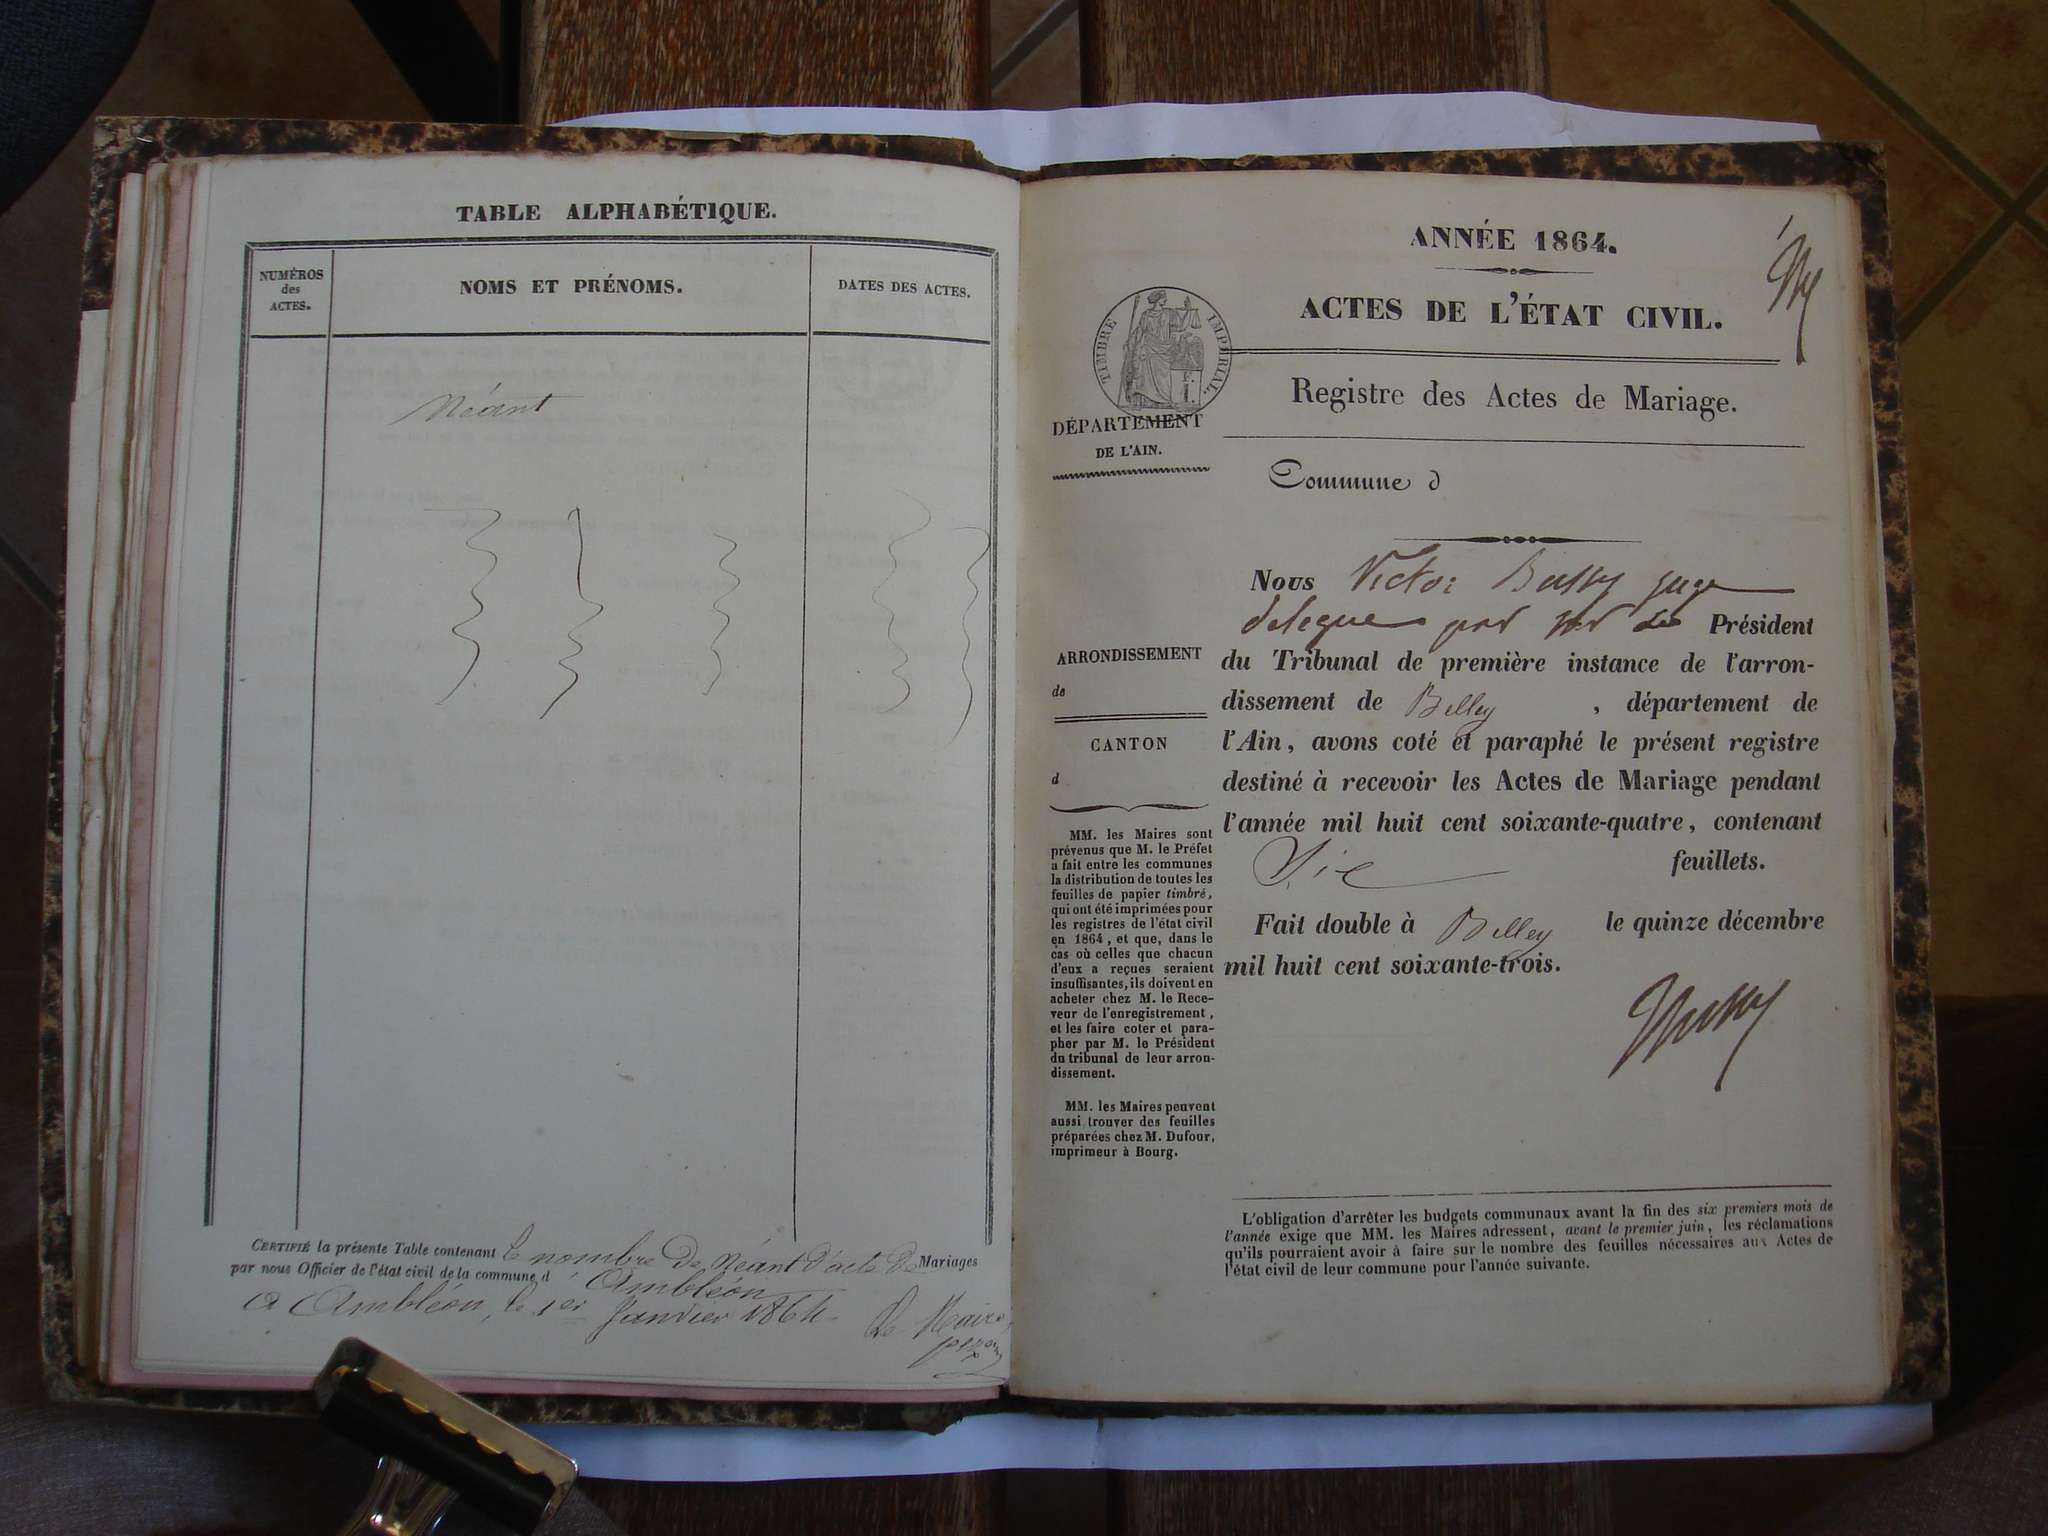 TABLE ALPHABÉTIQUE.
NUMÉROS
des
ACTES.
NOMS ET PRÉNOMS.
DATES DES ACTES.
Néant
CERTIFIÉ la présente Table contenant le nombre de Néant d'acte de Mariages
par nous Officier de l'état civil de la commune d' Ambléon
A Ambléon, le 1er Janvier 1864.
Le Maire,
ANNÉE 1864.
ACTES DE L'ÉTAT CIVIL.
TIMBRE IMPÉRIAL.
Registre des Actes de Mariage.
DÉPARTEMENT
DE L'AIN.
Commune d
ARRONDISSEMENT
de
CANTON
d
MM. les Maires sont
prévenus que M. le Préfet
a fait entre les communes
la distribution de toutes les
feuilles de papier timbré,
qui ont été imprimées pour
les registres de l'état civil
en 1864, et que, dans le
cas où celles que chacun
d'eux a reçues seraient
insuffisantes, ils doivent en
acheter chez M. le Rece-
veur de l'enregistrement,
et les faire coter et para-
pher par M. le Président
du tribunal de leur arron-
dissement.
MM. les Maires peuvent
aussi trouver des feuilles
préparées chez M. Dufour,
imprimeur à Bourg.
Nous Victor Bussy juge
delegue par Président
du Tribunal de première instance de l'arron-
dissement de Belley , département de
l'Ain, avons coté et paraphé le présent registre
destiné à recevoir les Actes de Mariage pendant
l'année mil huit cent soixante-quatre, contenant
feuillets.
Fait double à Belley le quinze décembre
mil huit cent soixante-trois.
Bussy
L'obligation d'arrêter les budgets communaux avant la fin des six premiers mois de
l'année exige que MM. les Maires adressent, avant le premier juin, les réclamations
qu'ils pourraient avoir à faire sur le nombre des feuilles nécessaires aux Actes de
l'état civil de leur commune pour l'année suivante.